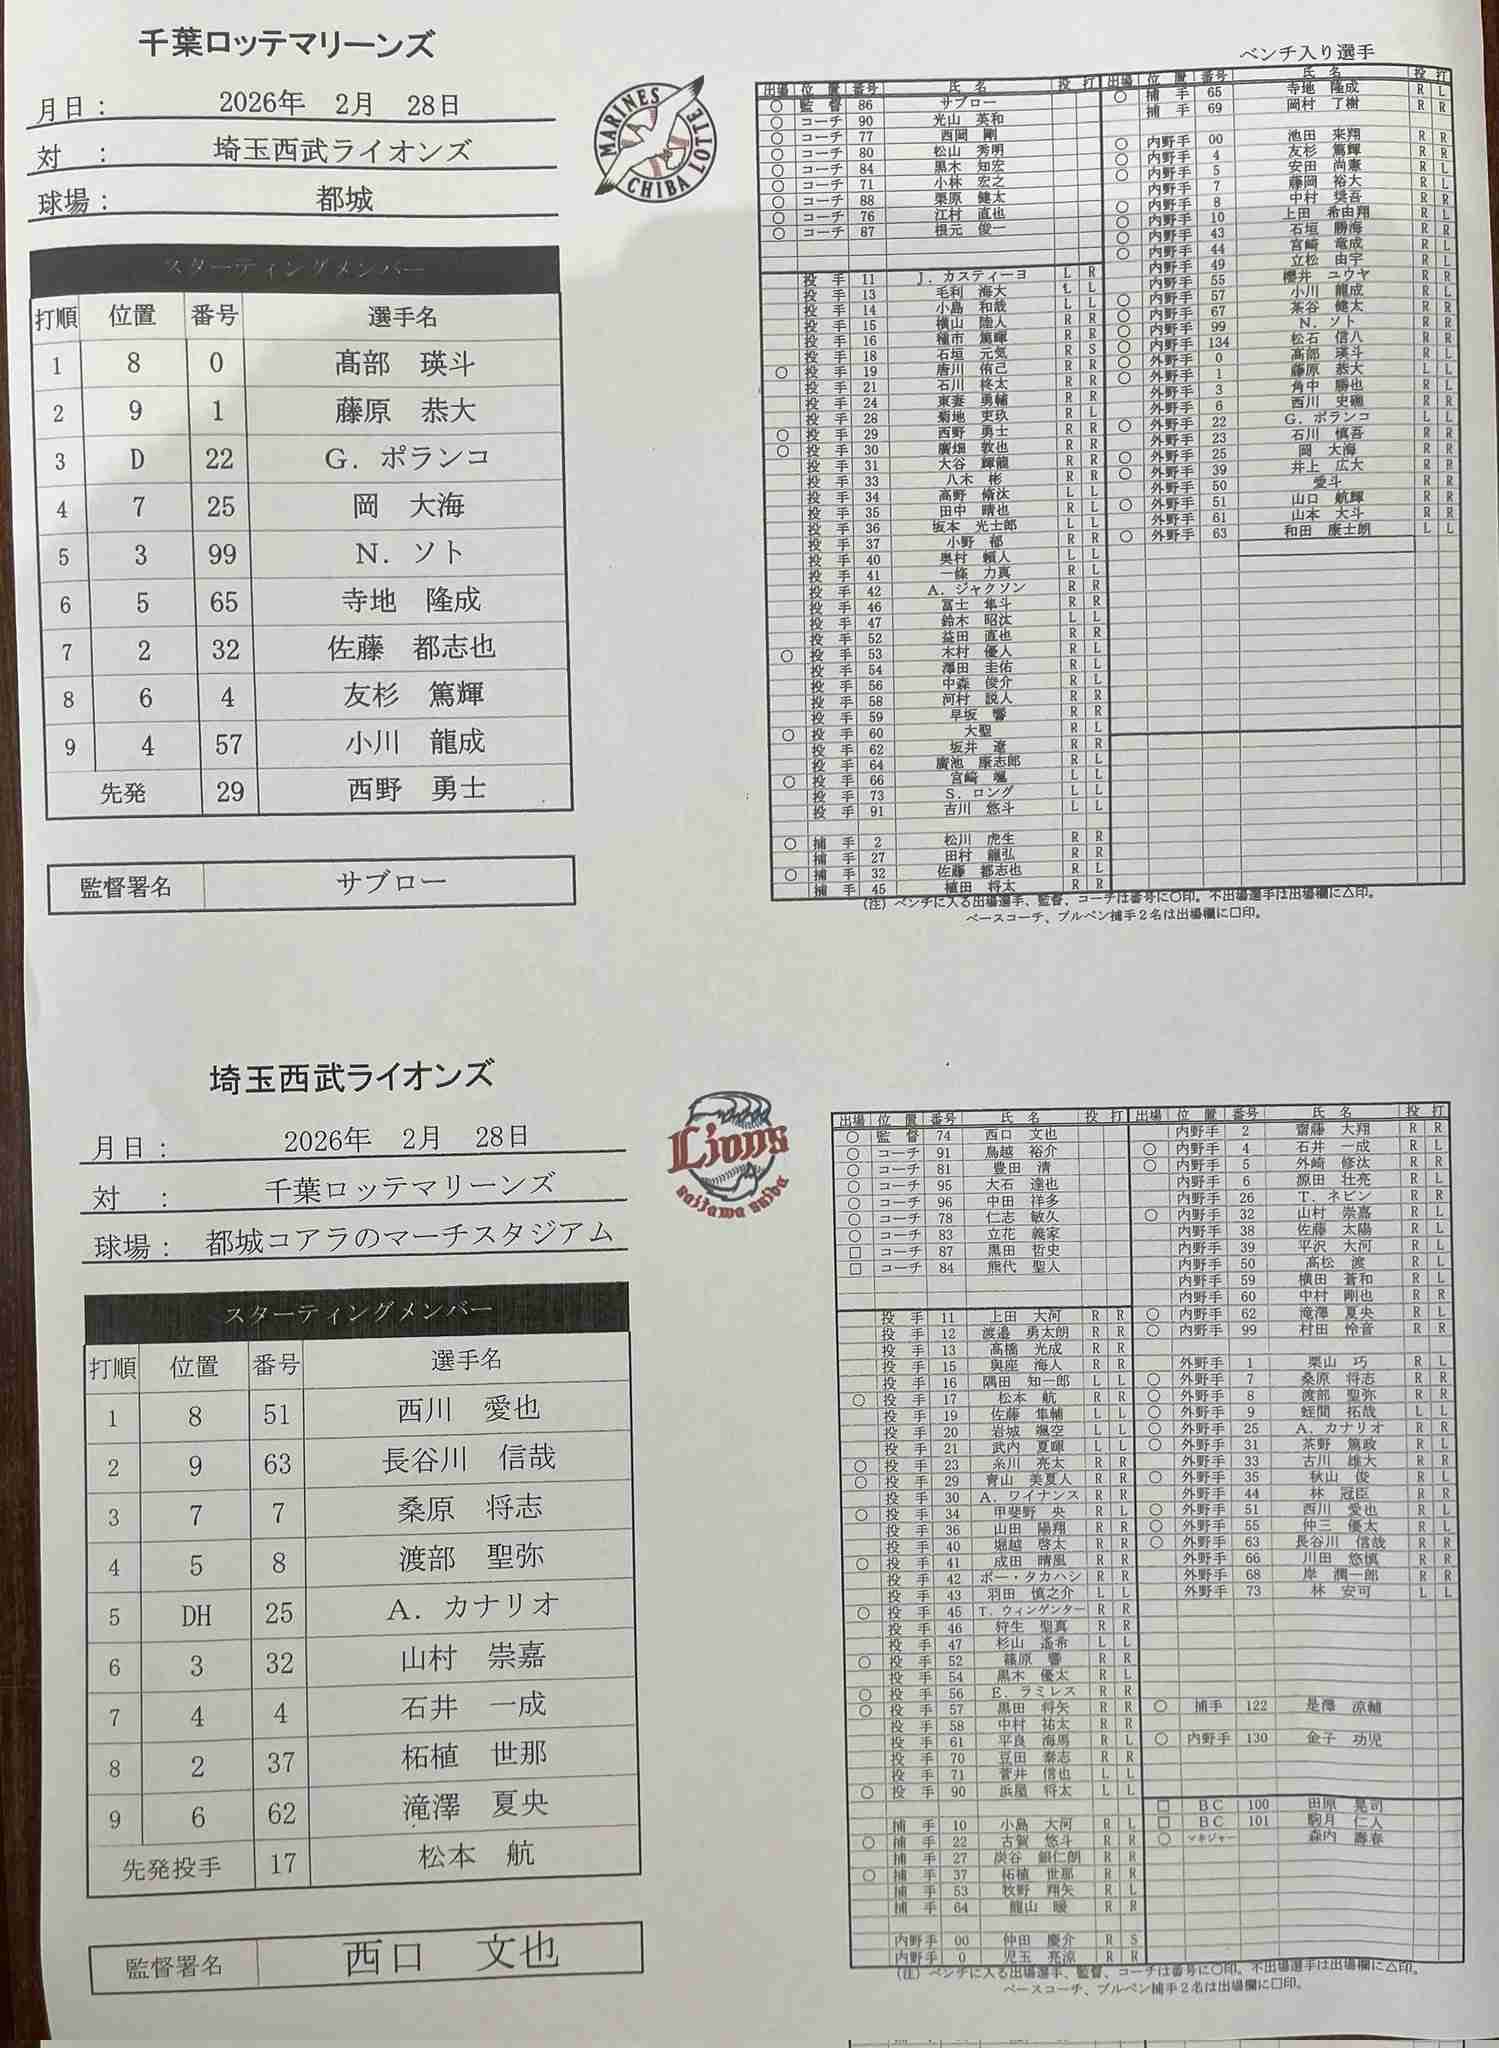 千葉ロッテマリーンズ
月日： 2026年 2月 28日
対 ： 埼玉西武ライオンズ
球場： 都城
MARINES
CHIBA LOTTE
スターティングメンバー
打順 位置 番号 選手名
1 8 0 髙部 瑛斗
2 9 1 藤原 恭大
3 D 22 G．ポランコ
4 7 25 岡 大海
5 3 99 N．ソト
6 5 65 寺地 隆成
7 2 32 佐藤 都志也
8 6 4 友杉 篤輝
9 4 57 小川 龍成
先発 29 西野 勇士
監督署名 サブロー
ベンチ入り選手
出場 位置 番号 氏名 投 打
○ 監督 86 サブロー
○ コーチ 90 光山 英和
○ コーチ 77 西岡 剛
○ コーチ 80 松山 秀明
○ コーチ 84 黒木 知宏
○ コーチ 71 小林 宏之
○ コーチ 88 栗原 健太
○ コーチ 76 江村 直也
○ コーチ 87 根元 俊一
投手 11 J．カスティーヨ L R
投手 13 毛利 海大 L L
投手 14 小島 和哉 L L
投手 15 横山 陸人 R R
投手 16 種市 篤暉 R R
投手 18 石垣 元気 R S
○ 投手 19 唐川 侑己 R R
投手 21 石川 柊太 R R
投手 24 東妻 勇輔 R R
投手 28 菊地 吏玖 R L
○ 投手 29 西野 勇士 R R
○ 投手 30 廣畑 敦也 R R
投手 31 大谷 輝龍 R R
投手 33 八木 彬 R R
投手 34 高野 脩汰 L L
投手 35 田中 晴也 R L
投手 36 坂本 光士郎 L L
投手 37 小野 郁 R R
投手 40 奥村 頼人 L L
投手 41 一條 力真 R L
投手 42 A．ジャクソン R R
投手 46 冨士 隼斗 R R
投手 47 鈴木 昭汰 L L
投手 52 益田 直也 R R
○ 投手 53 木村 優人 R L
投手 54 澤田 圭佑 R L
投手 56 中森 俊介 R L
投手 58 河村 説人 R R
投手 59 早坂 響 R R
○ 投手 60 大聖 R L
投手 62 坂井 遼 R R
投手 64 廣池 康志郎 R L
○ 投手 66 宮﨑 颯 L L
投手 73 S．ロング L L
投手 91 吉川 悠斗 L L
○ 捕手 2 松川 虎生 R R
捕手 27 田村 龍弘 R R
○ 捕手 32 佐藤 都志也 R L
捕手 45 植田 将太 R R
出場 位置 番号 氏名 投 打
○ 捕手 65 寺地 隆成 R L
捕手 69 岡村 了樹 R R
○ 内野手 00 池田 来翔 R R
○ 内野手 4 友杉 篤輝 R R
○ 内野手 5 安田 尚憲 R L
内野手 7 藤岡 裕大 R L
○ 内野手 8 中村 奨吾 R R
○ 内野手 10 上田 希由翔 R L
○ 内野手 43 石垣 勝海 R R
○ 内野手 44 宮崎 竜成 R L
内野手 49 立松 由宇 R L
内野手 55 櫻井 ユウヤ R R
○ 内野手 57 小川 龍成 R L
○ 内野手 67 茶谷 健太 R R
○ 内野手 99 N．ソト R R
○ 内野手 134 松石 信八 R R
○ 外野手 0 髙部 瑛斗 R L
○ 外野手 1 藤原 恭大 L L
外野手 3 角中 勝也 R L
外野手 6 西川 史礁 R R
○ 外野手 22 G．ポランコ L L
外野手 23 石川 慎吾 R R
○ 外野手 25 岡 大海 R R
○ 外野手 39 井上 広大 R R
外野手 50 愛斗 R R
○ 外野手 51 山口 航輝 R R
外野手 61 山本 大斗 R R
○ 外野手 63 和田 康士朗 L L
（注）ベンチに入る出場選手、監督、コーチは番号に○印。不出場選手は出場欄に△印。
ベースコーチ、ブルペン捕手２名は出場欄に□印。
埼玉西武ライオンズ
月日： 2026年 2月 28日
対 ： 千葉ロッテマリーンズ
球場： 都城コアラのマーチスタジアム
Lions
saitama seibu
スターティングメンバー
打順 位置 番号 選手名
1 8 51 西川 愛也
2 9 63 長谷川 信哉
3 7 7 桑原 将志
4 5 8 渡部 聖弥
5 DH 25 A．カナリオ
6 3 32 山村 崇嘉
7 4 4 石井 一成
8 2 37 柘植 世那
9 6 62 滝澤 夏央
先発投手 17 松本 航
監督署名 西口 文也
出場 位置 番号 氏名 投 打
○ 監督 74 西口 文也
○ コーチ 91 鳥越 裕介
○ コーチ 81 豊田 清
○ コーチ 95 大石 達也
○ コーチ 96 中田 祥多
○ コーチ 78 仁志 敏久
○ コーチ 83 立花 義家
□ コーチ 87 黒田 哲史
□ コーチ 84 熊代 聖人
投手 11 上田 大河 R R
投手 12 渡邉 勇太朗 R R
投手 13 髙橋 光成 R R
投手 15 與座 海人 R R
投手 16 隅田 知一郎 L L
○ 投手 17 松本 航 R R
投手 19 佐藤 隼輔 L L
投手 20 岩城 颯空 L L
投手 21 武内 夏暉 L L
○ 投手 23 糸川 亮太 R R
○ 投手 29 青山 美夏人 R R
投手 30 A．ワイナンス R R
○ 投手 34 甲斐野 央 R L
投手 36 山田 陽翔 R R
投手 40 堀越 啓太 R R
○ 投手 41 成田 晴風 R R
投手 42 ボー・タカハシ R R
投手 43 羽田 慎之介 L L
○ 投手 45 T．ウィンゲンター R R
投手 46 狩生 聖真 R R
投手 47 杉山 遙希 L L
○ 投手 52 篠原 響 R R
投手 54 黒木 優太 R L
○ 投手 56 E．ラミレス R R
○ 投手 57 黒田 将矢 R R
投手 58 中村 祐太 R R
投手 61 平良 海馬 R L
投手 70 豆田 泰志 R R
投手 71 菅井 信也 L L
○ 投手 90 浜屋 将太 L L
捕手 10 小島 大河 R L
○ 捕手 22 古賀 悠斗 R R
捕手 27 炭谷 銀仁朗 R R
○ 捕手 37 柘植 世那 R R
捕手 53 牧野 翔矢 R L
捕手 64 龍山 暖 R R
内野手 00 仲田 慶介 R S
内野手 0 児玉 亮涼 R R
出場 位置 番号 氏名 投 打
内野手 2 齋藤 大翔 R R
○ 内野手 4 石井 一成 R L
○ 内野手 5 外崎 修汰 R R
内野手 6 源田 壮亮 R L
内野手 26 T．ネビン R R
○ 内野手 32 山村 崇嘉 R L
内野手 38 佐藤 太陽 R L
内野手 39 平沢 大河 R L
内野手 50 高松 渡 R L
内野手 59 横田 蒼和 R L
内野手 60 中村 剛也 R R
○ 内野手 62 滝澤 夏央 R L
○ 内野手 99 村田 怜音 R R
外野手 1 栗山 巧 R L
○ 外野手 7 桑原 将志 R R
○ 外野手 8 渡部 聖弥 R R
○ 外野手 9 蛭間 拓哉 L L
○ 外野手 25 A．カナリオ R R
○ 外野手 31 茶野 篤政 R L
外野手 33 古川 雄大 R R
○ 外野手 35 秋山 俊 R L
外野手 44 林 冠臣 R R
○ 外野手 51 西川 愛也 R L
○ 外野手 55 仲三 優太 R L
○ 外野手 63 長谷川 信哉 R R
外野手 66 川田 悠慎 R R
外野手 68 岸 潤一郎 R R
外野手 73 林 安可 L L
○ 捕手 122 是澤 涼輔
○ 内野手 130 金子 功児
□ BC 100 田原 晃司
□ BC 101 駒月 仁人
○ マネジャー 森内 壽春
（注）ベンチに入る出場選手、監督、コーチは番号に○印。不出場選手は出場欄に△印。
ベースコーチ、ブルペン捕手２名は出場欄に□印。